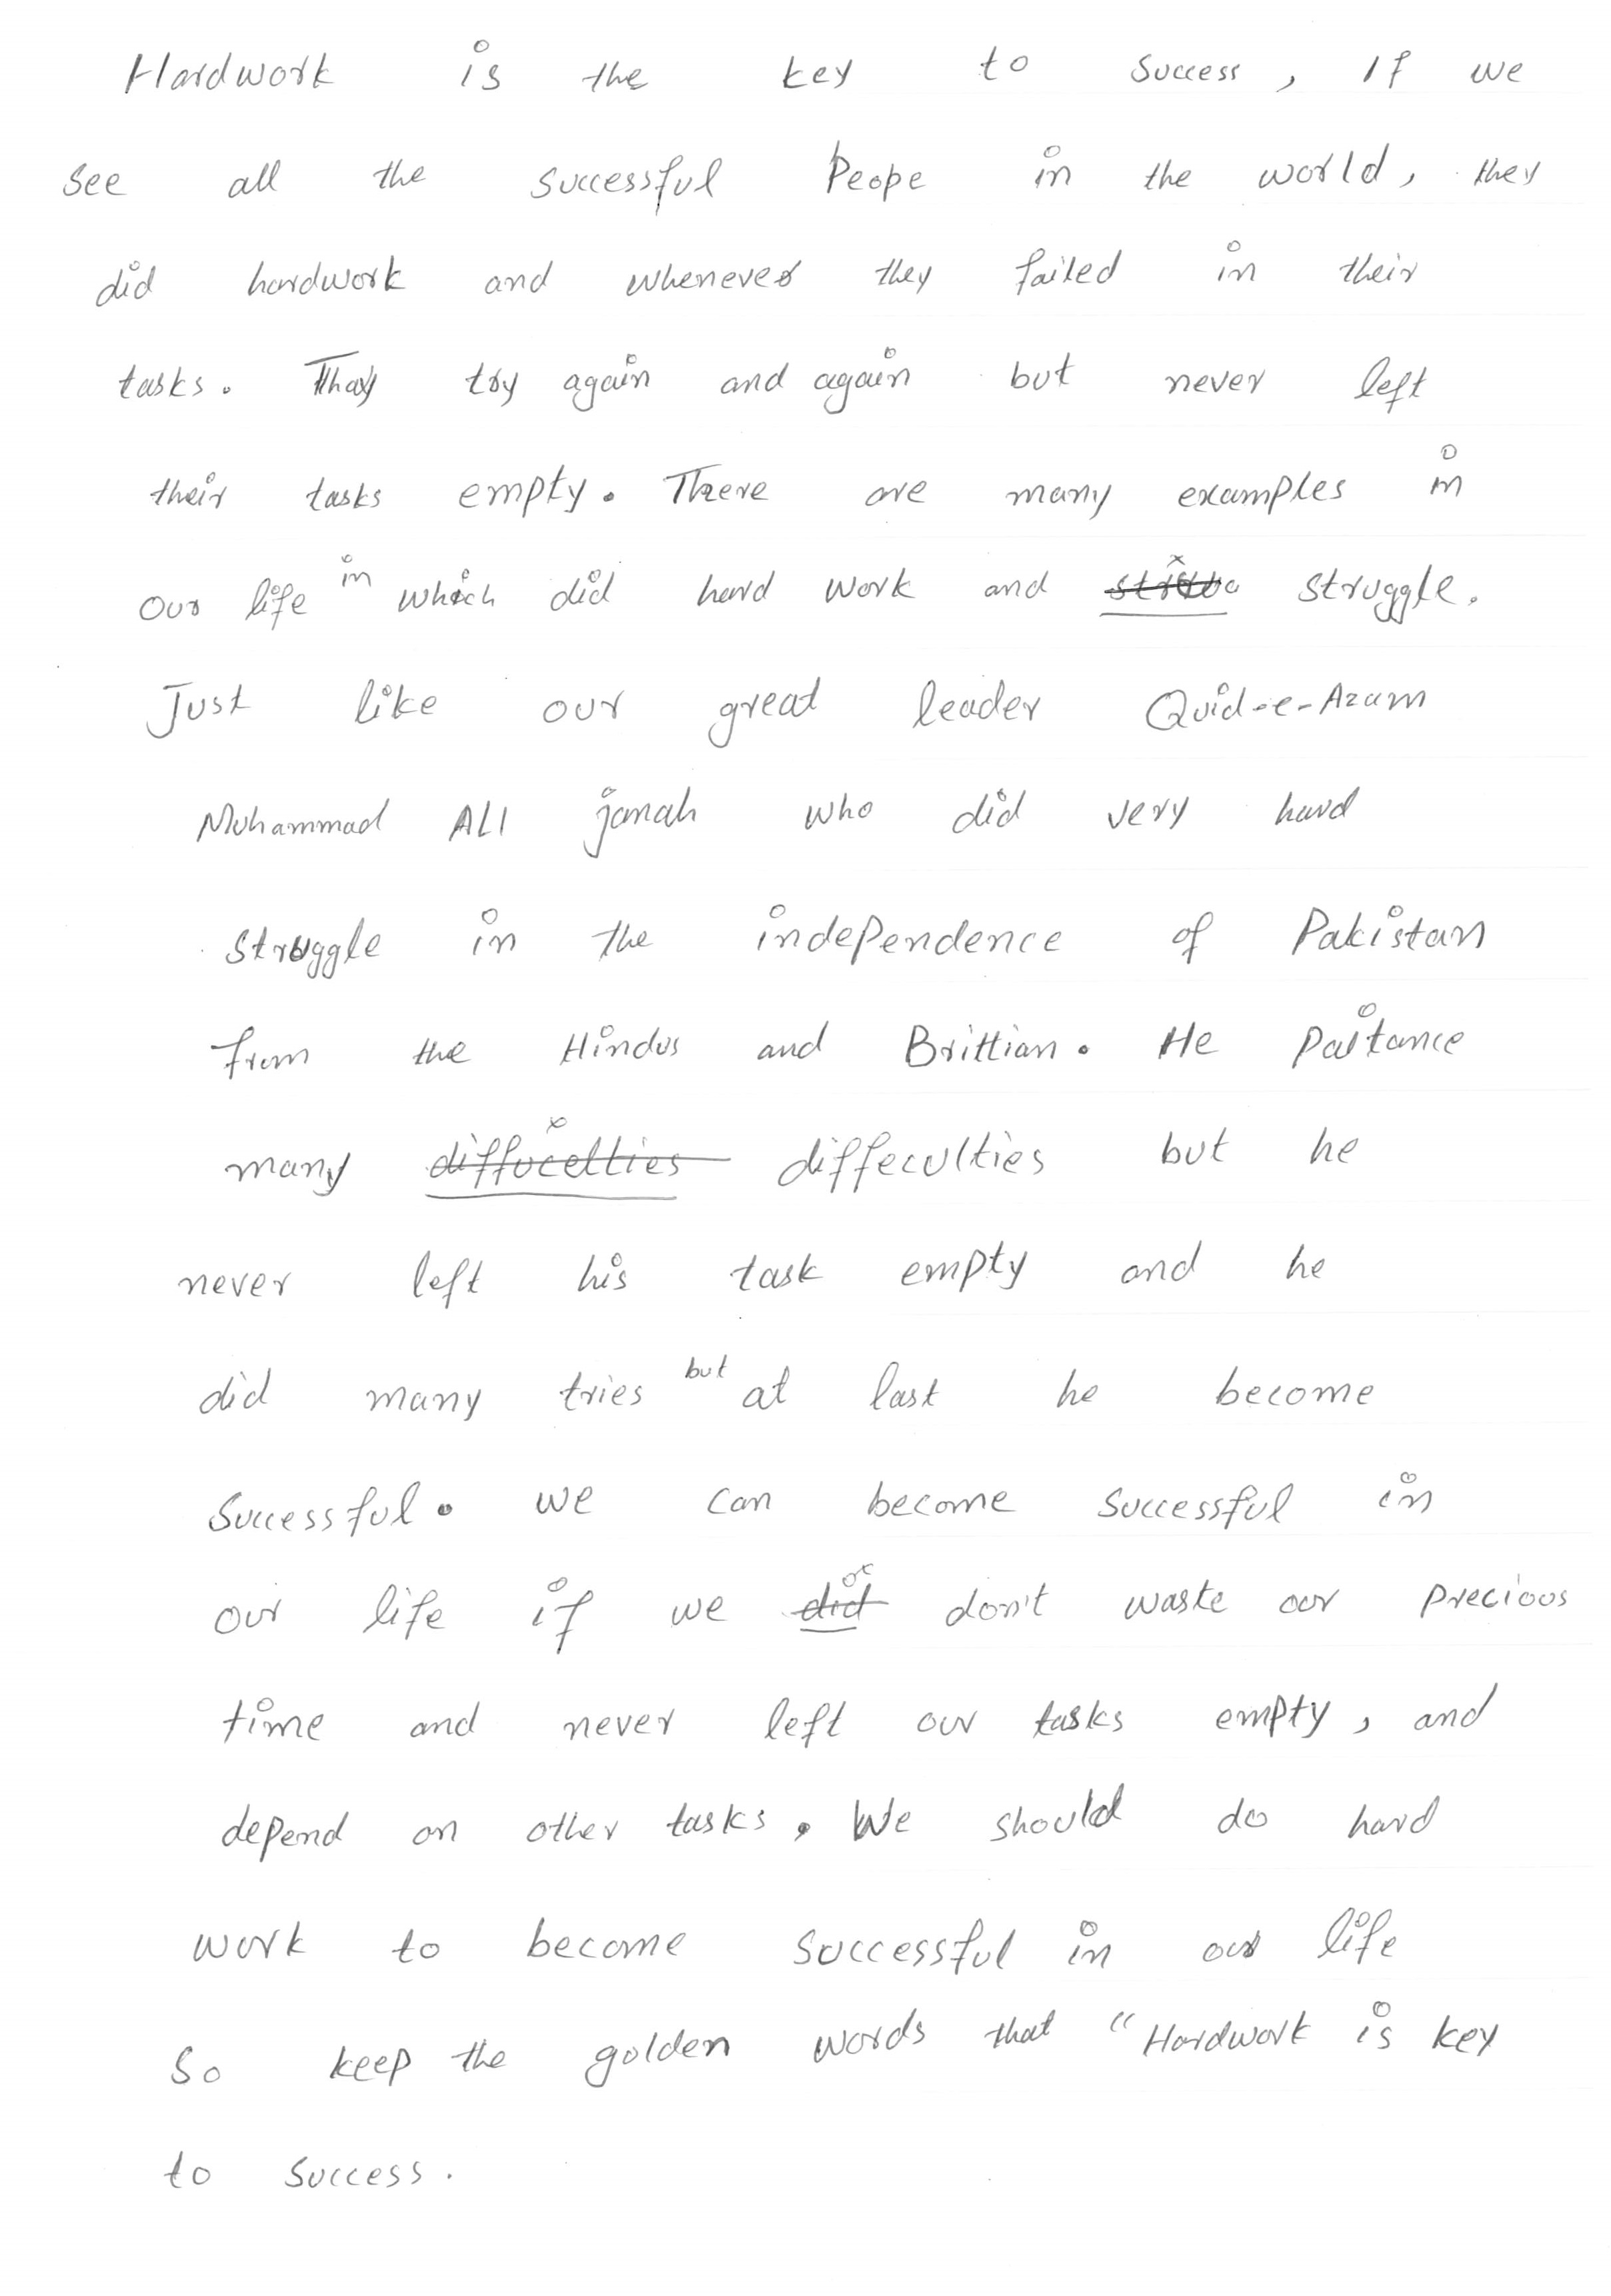 Hardwork is the key to success, If we
see all the successful Peope in the world, they
did hardwork and whenever they failed in their
tasks. Thay try again and again but never left
their tasks empty. There are many examples in
our life in which did hard work and struggle.
Just like our great leader Quid-e-Azam
Muhammad ALI janah who did very hard
struggle in the independence of Pakistan
from the Hindus and Brittian. He Paitance
many diffocelties diffeculties but he
never left his task empty and he
did many tries but at last he become
successful. we can become successful in
our life if we did don't waste our precious
time and never left our tasks empty, and
depend on other tasks. We should do hard
work to become successful in our life
So keep the golden words that "Hardwork is key
to success.